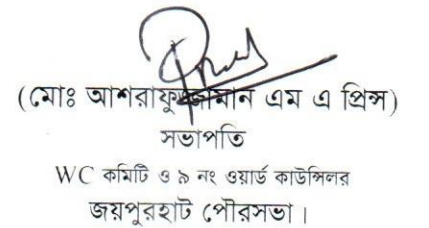 (মোঃ আশরাফুজ্জামান এম এ প্রিন্স)
সভাপতি
WC কমিটি ও ৯ নং ওয়ার্ড কাউন্সিলর
জয়পুরহাট পৌরসভা।